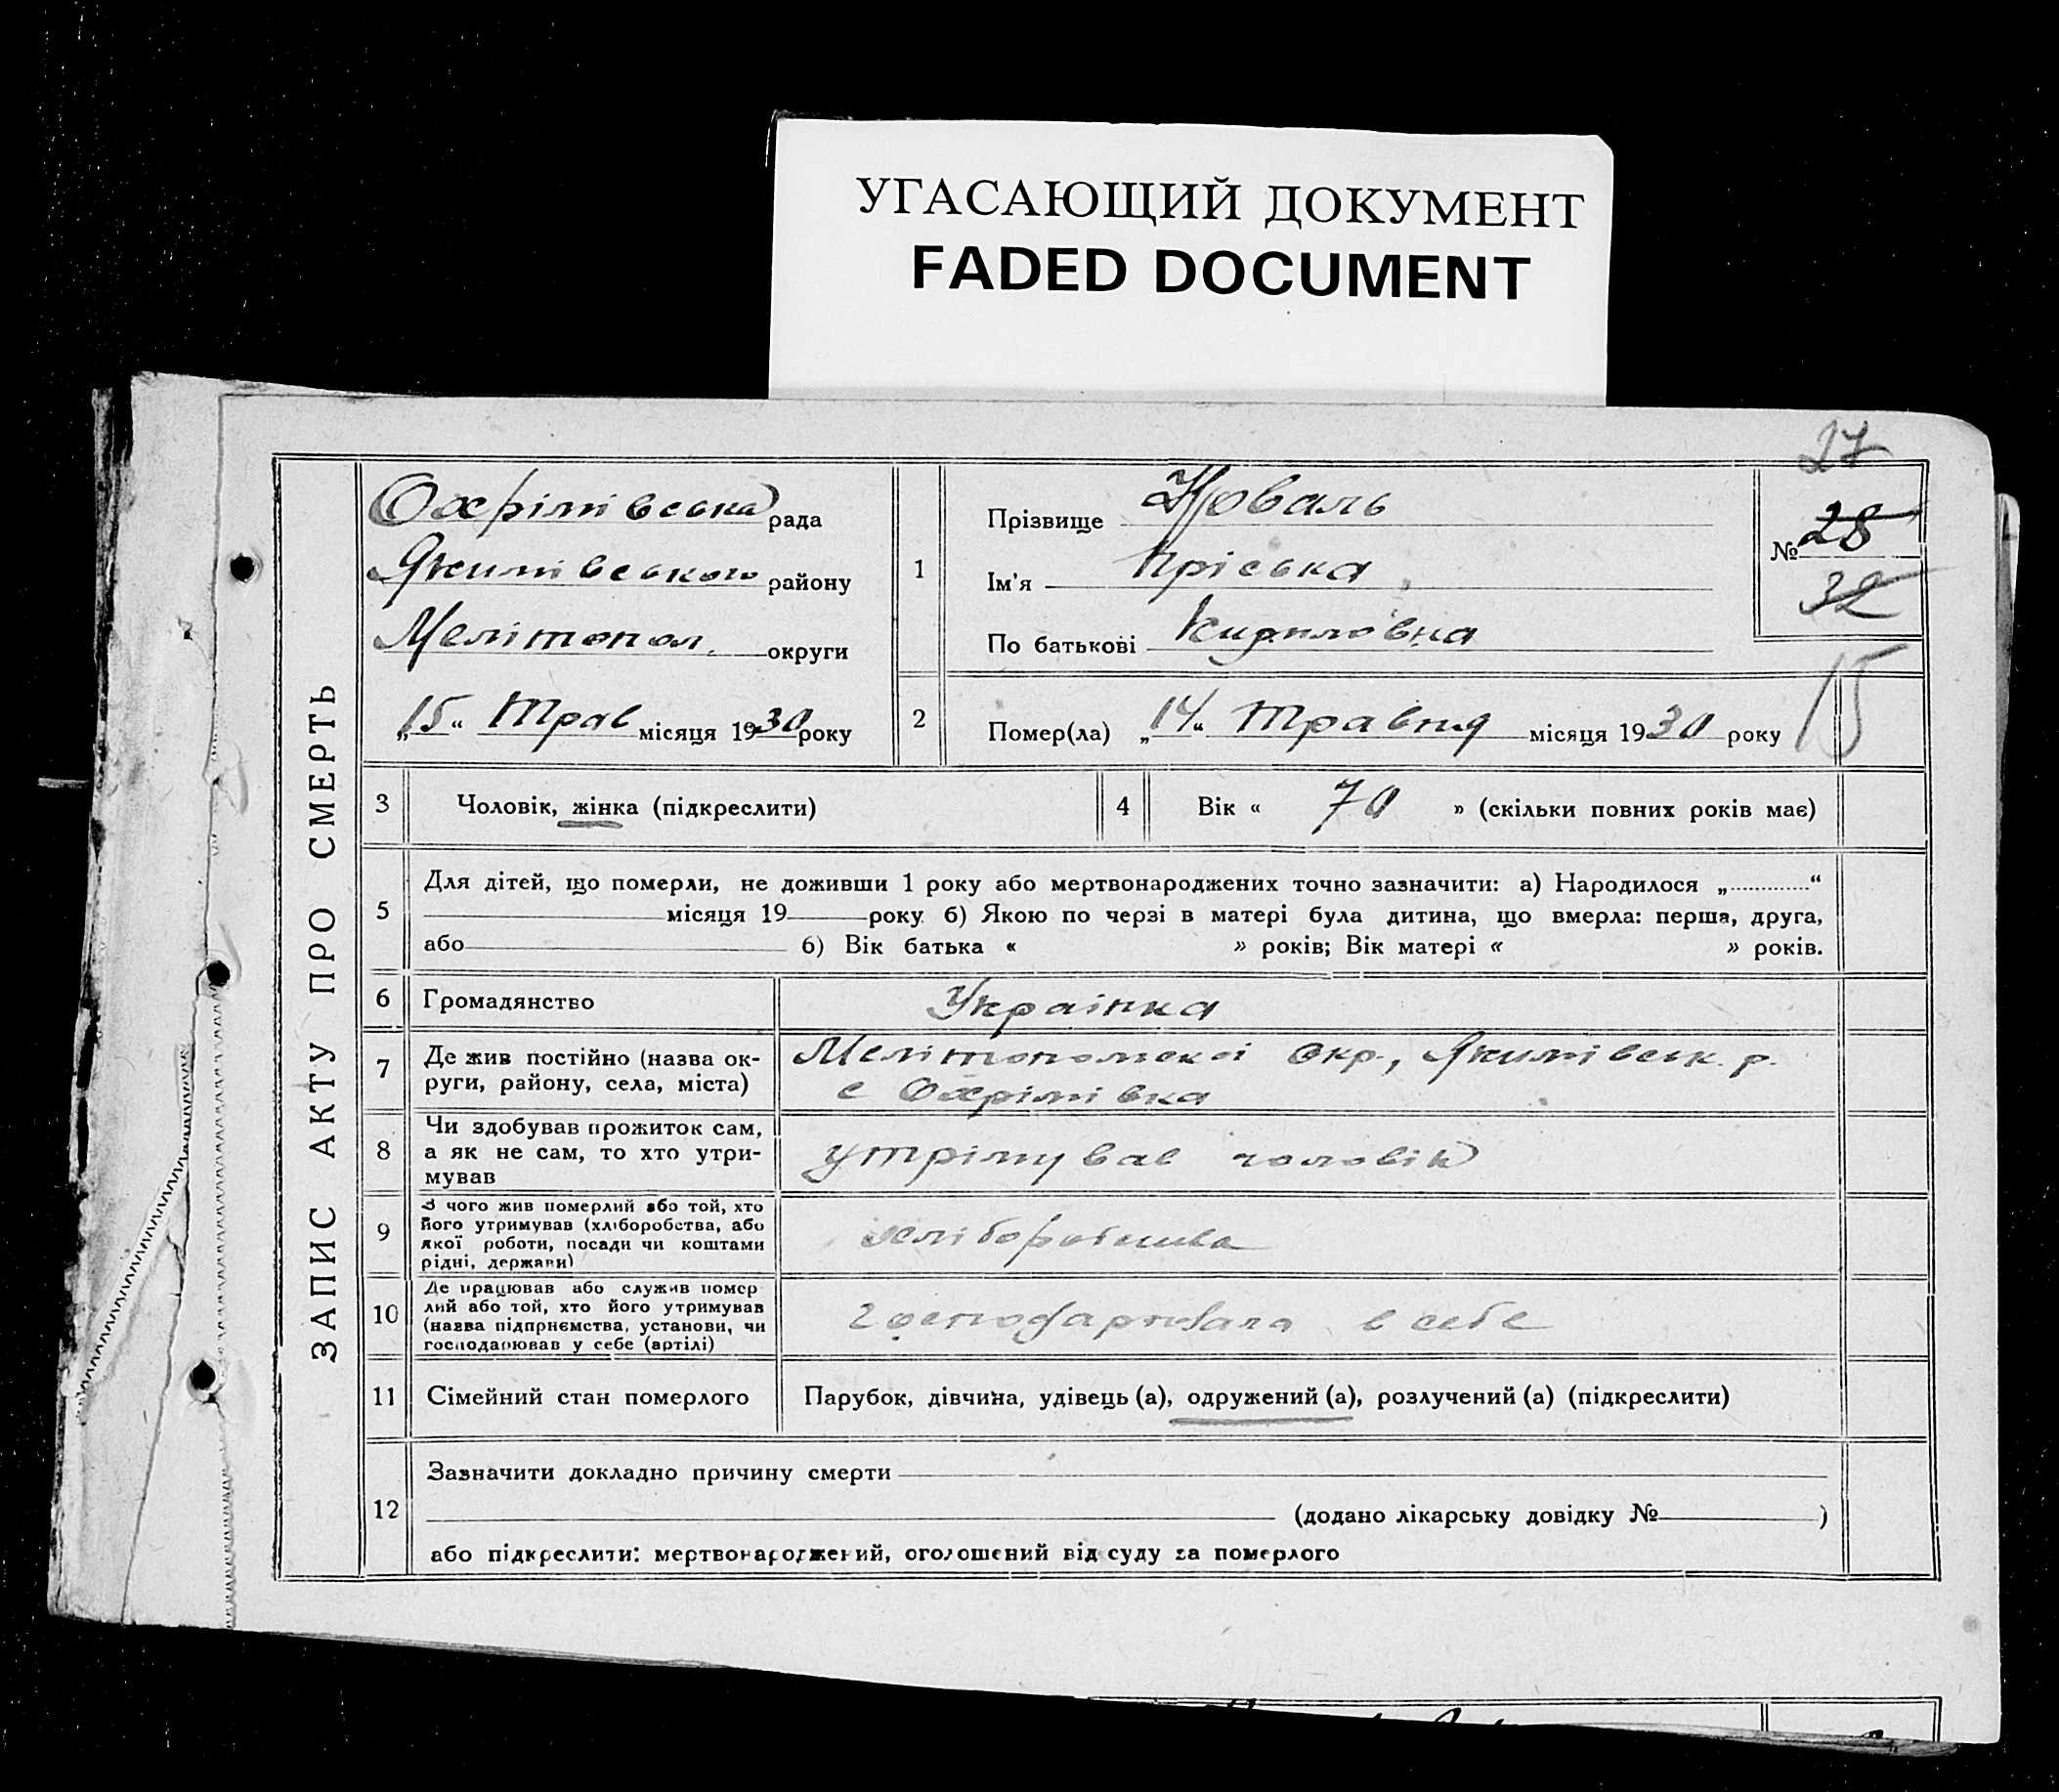 УГАСАЮЩИЙ ДОКУМЕНТ
FADED DOCUMENT
27
ЗАПИС АКТУ ПРО СМЕРТЬ
Охрімівська рада
Якимівського району
Мелітопол. округи
„15“ Трав місяця 1930 року
1
Прізвище Коваль
Ім'я Пріська
По батькові Кирилówна
№ 28
32
15
2
Помер(ла) „14“ Травня місяця 1930 року
3
Чоловік, жінка (підкреслити)
4
Вік « 70 » (скільки повних років має)
5
Для дітей, що померли, не доживши 1 року або мертвонароджених точно зазначити: а) Народилося „ “
місяця 19 року. б) Якою по черзі в матері була дитина, що вмерла: перша, друга,
або б) Вік батька « » років; Вік матері « » років.
6
Громадянство
Украінка
7
Де жив постійно (назва ок-
руги, району, села, міста)
Мелітополмскоі Окр., Якимівськ. р.
с Охрімівка
8
Чи здобував прожиток сам,
а як не сам, то хто утри-
мував
утрімував чоловік
9
З чого жив померлий або той, хто
його утримував (хліборобства, або
якої роботи, посади чи коштами
рідні, держави)
хліборобства
10
Де працював або служив помер
лий або той, хто його утримував
(назва підприємства, установи, чи
господарював у себе (артілі)
господарювала в себе
11
Сімейний стан померлого
Парубок, дівчина, удівець (а), одружений (а), розлучений (а) (підкреслити)
12
Зазначити докладно причину смерти
(додано лікарську довідку № )
або підкреслити: мертвонароджений, оголошений від суду за померлого